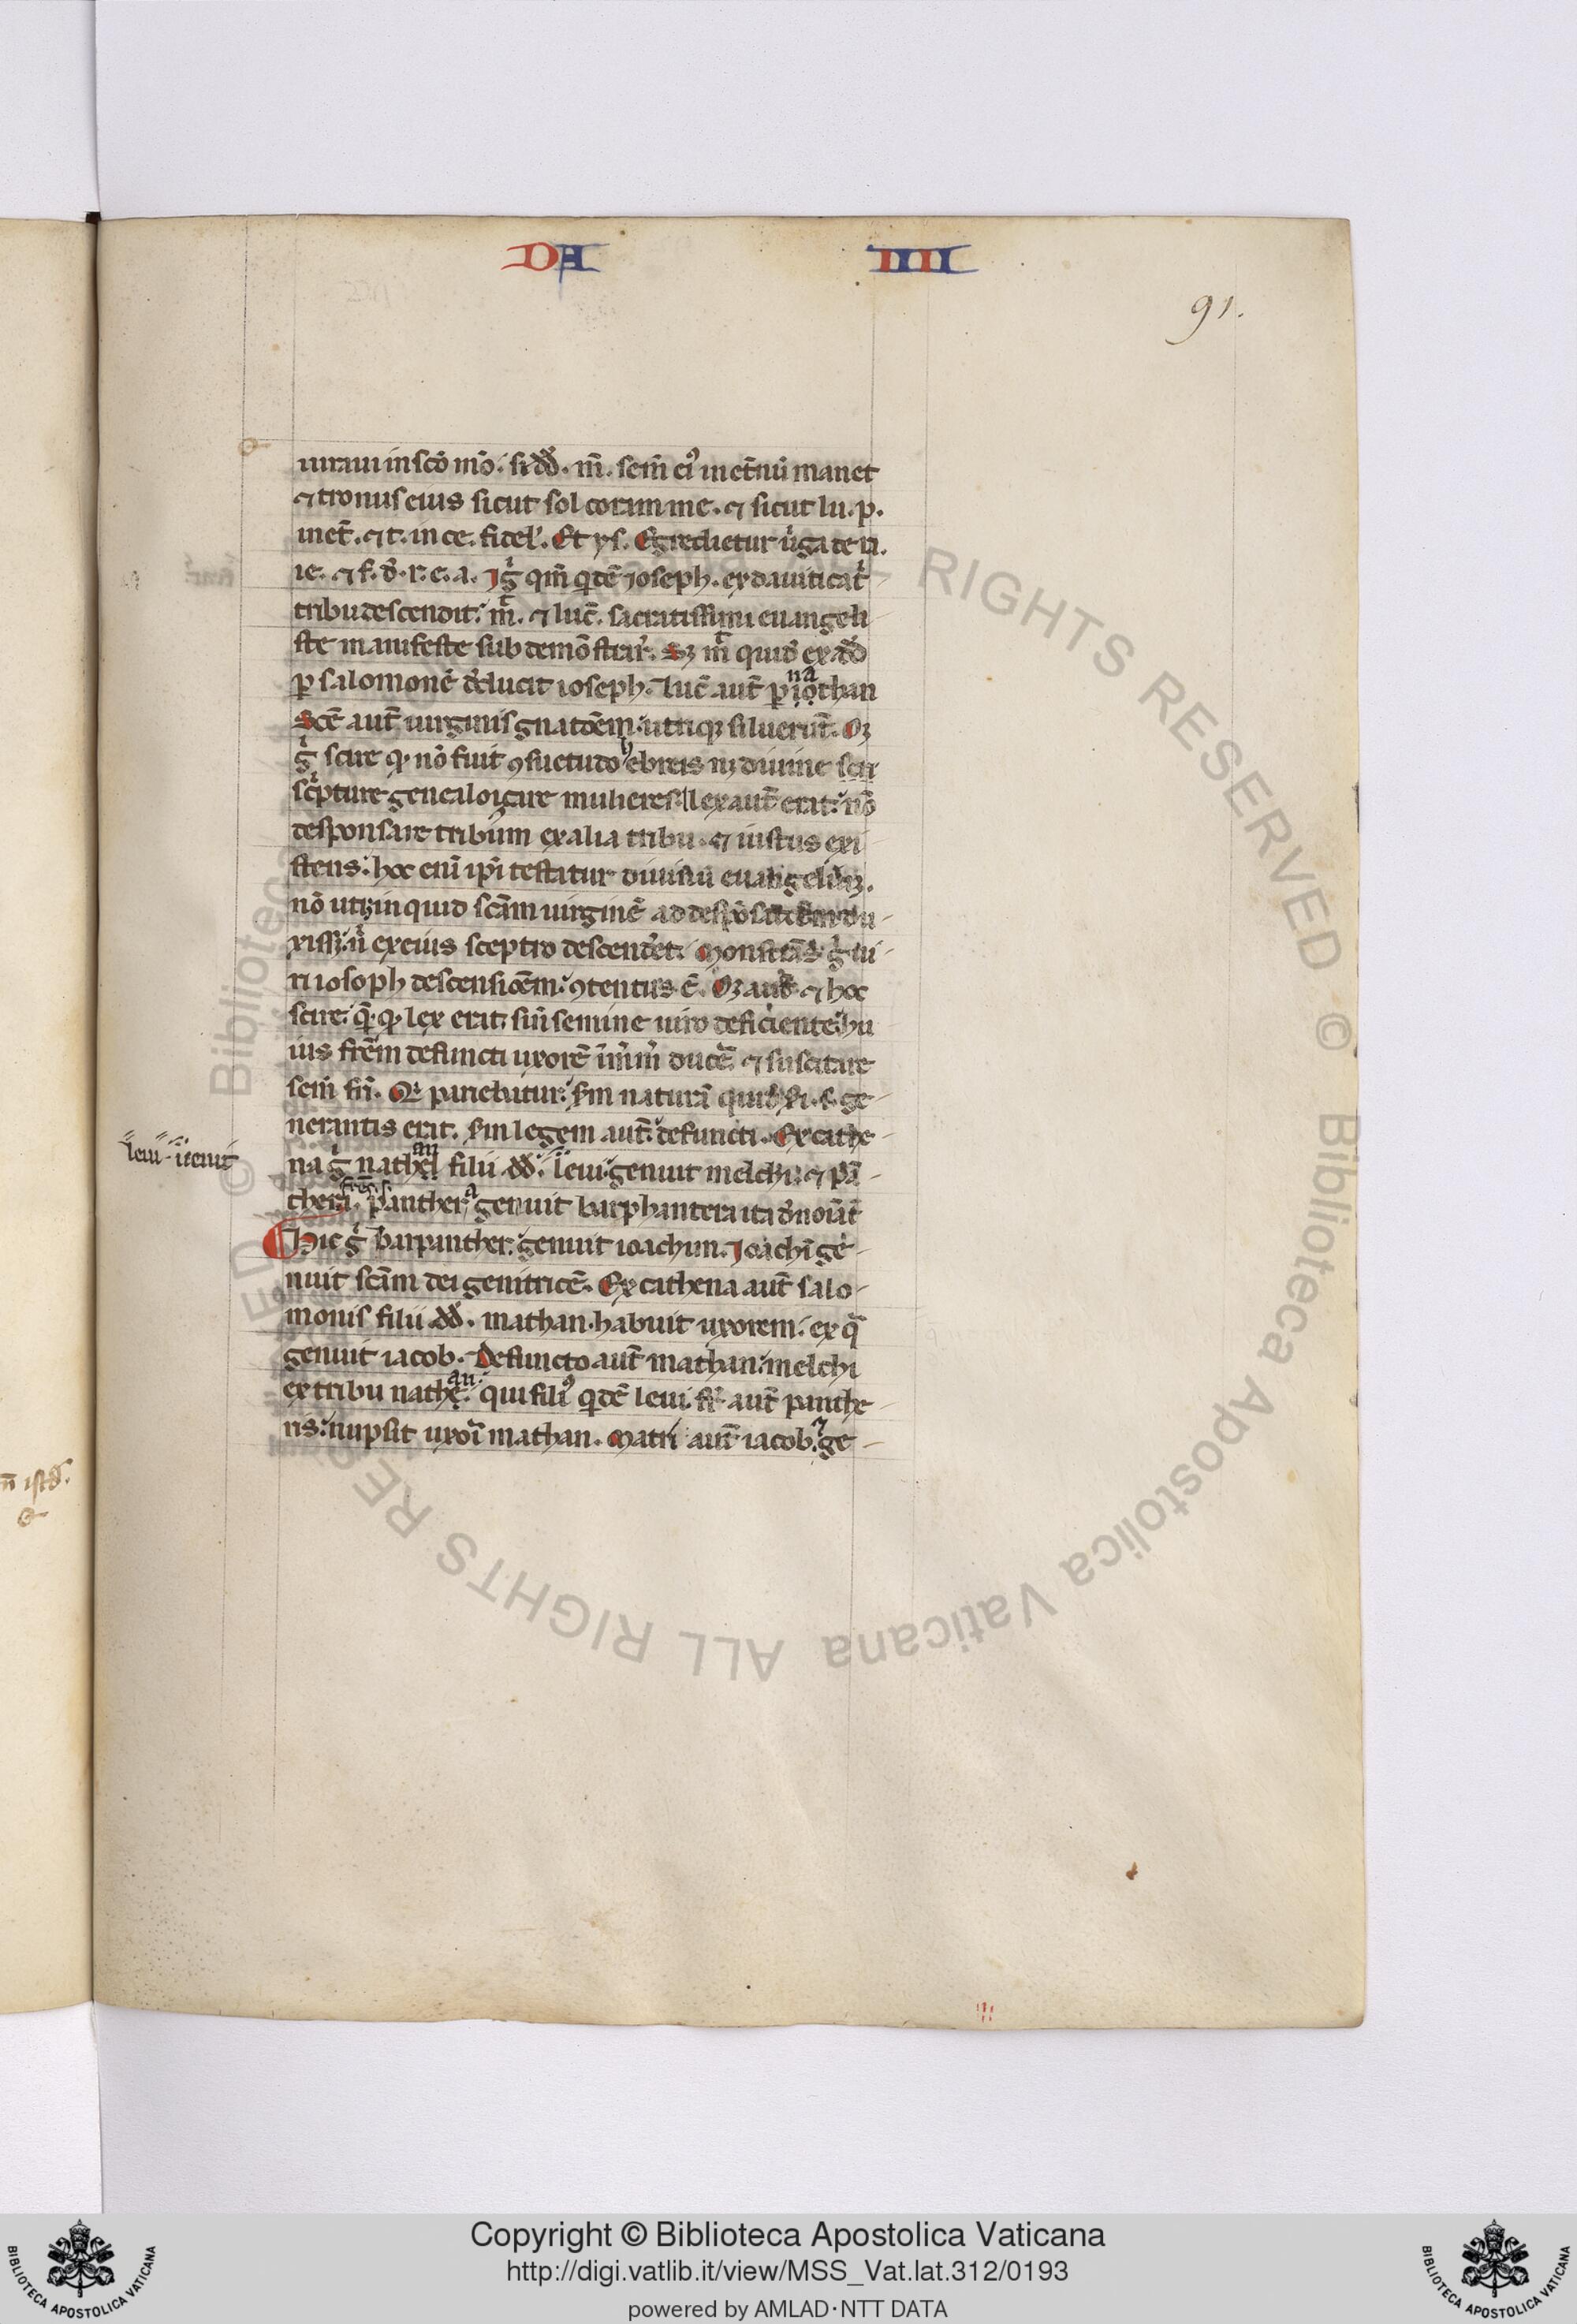 DA IIII
91.
iuraui in sc̄o mō. si dd̄. m̄. sem̄ ei9 in et̄nū manet
⁊ tronus eius sicut sol coram me. ⁊ sicut lu. p.
in et̄. ⁊ t. in ce. fidel'. Et ys. Egredietur u̇ga de r.
ie. ⁊ f. d̄. r. e. a. Igͥ qm̄ qͥdē ioseph. ex dauitica
tribu descendit. m̄. ⁊ luc̄. sacratissimi euangeli
ste manifeste sub demōstrar̄. Sꝫ m̄ quid' ex dd̄
ꝑ salomonē deducit ioseph. luc̄ aut̄ ꝑ iothan
na
Scē aut̄ uirginis gnatōem utriqꝫ siluerūt. Oꝫ
gͥ scire qꝫ nō fuit ꝯsuetudo hebreis nꝫ diuine
scͥpture genealogiçare mulieres. lex aut̄ erat nō
desponsare tribum ex alia tribu. ⁊ iustus exi
stens. hoc eni ip̄i testatur diuinū euangeliū.
nō utiqꝫ inquid scām uirginē ad
n̄ ex eius sceptro descendet. Monstrās gͥ ui
ri iosoph descensiōem. ꝯtentus ē. Oꝫ aut̄ ⁊ hoc
scire. qꝫ lex erat sin̄ semine uiro deficiente. hu
ius fr̄em defuncti uxorē ducē ⁊ suscitare
sem̄ fr̄i. Qd̄ pariebatur. sm̄ naturā quid' ge
nerantis erat. sm̄ legem aut̄ defuncti. Ex cathe
leui
na gͥ nathan filii dd̄. leui genuit melchi ⁊ pā
thera. panthera genuit barphantera ita d'noīat̄
Hic gͥ barpanther genuit ioachim. Ioachī ge
nuit scām dei genitricē. Ex cathena aut̄ salo
monis filii dd̄. mathan habuit uxorem. ex qͣ
genuit iacob. Defuncto aut̄ mathan melchi
ex tribu nathan. qui fili9 qͥdē leui. fr̄ aut̄ panthe
ris nupsit uxori mathan. Matri aut̄ iacob. ⁊ ge
Copyright © Biblioteca Apostolica Vaticana
http://digi.vatlib.it/view/MSS_Vat.lat.312/0193
powered by AMLAD·NTT DATA
BIBLIOTECA APOSTOLICA VATICANA
BIBLIOTECA APOSTOLICA VATICANA
© Biblioteca Apostolica Vaticana ALL RIGHTS RESERVED